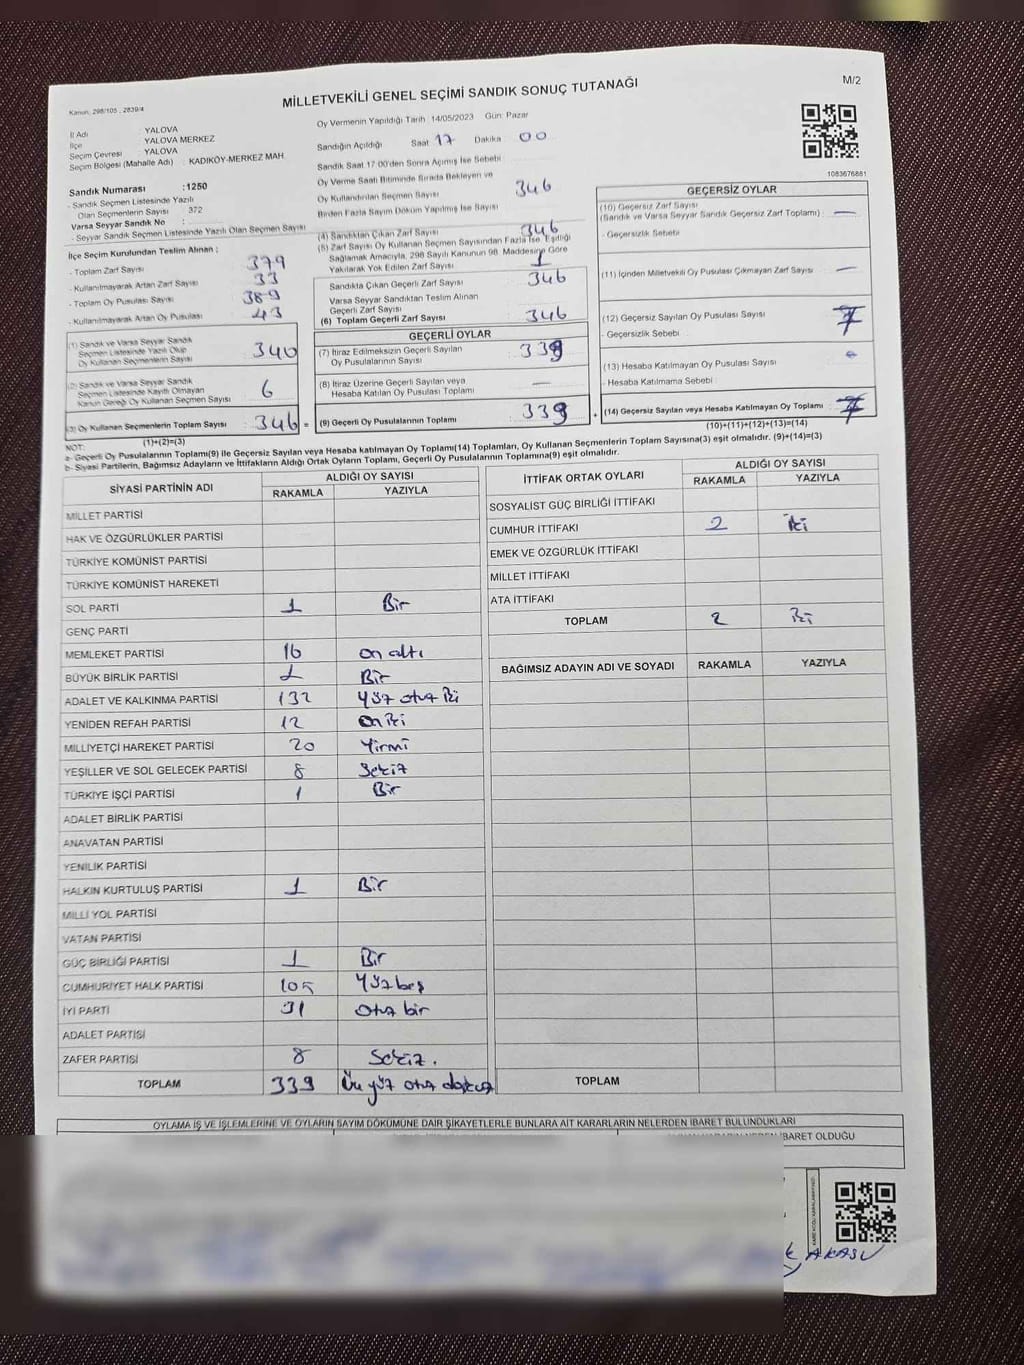 M/2
MİLLETVEKİLİ GENEL SEÇİMİ SANDIK SONUÇ TUTANAĞI
Kanun: 298/105 , 2839/4
İl Adı : YALOVA
İlçe : YALOVA MERKEZ
Seçim Çevresi : YALOVA
Seçim Bölgesi (Mahalle Adı) : KADIKÖY-MERKEZ MAH
Sandık Numarası : 1250
- Sandık Seçmen Listesinde Yazılı
Olan Seçmenlerin Sayısı : 372
Varsa Seyyar Sandık No :
- Seyyar Sandık Seçmen Listesinde Yazılı Olan Seçmen Sayısı
İlçe Seçim Kurulundan Teslim Alınan ;
- Toplam Zarf Sayısı 379
- Kullanılmayarak Artan Zarf Sayısı 33
- Toplam Oy Pusulası Sayısı 389
- Kullanılmayarak Artan Oy Pusulası 43
(1) Sandık ve Varsa Seyyar Sandık
Seçmen Listesinde Yazılı Olup
Oy Kullanan Seçmenlerin Sayısı 340
(2) Sandık ve Varsa Seyyar Sandık
Seçmen Listesinde Kayıtlı Olmayan
Kanun Gereği Oy Kullanan Seçmen Sayısı 6
(3) Oy Kullanan Seçmenlerin Toplam Sayısı 346
(1)+(2)=(3)
Oy Vermenin Yapıldığı Tarih 14/05/2023 Gün: Pazar
Sandığın Açıldığı Saat 17 Dakika 00
Sandık Saat 17:00'den Sonra Açılmış İse Sebebi
Oy Verme Saati Bitiminde Sırada Bekleyen ve
Oy Kullandırılan Seçmen Sayısı 346
Birden Fazla Sayım Döküm Yapılmış İse Sayısı
(4) Sandıktan Çıkan Zarf Sayısı 346
(5) Zarf Sayısı Oy Kullanan Seçmen Sayısından Fazla İse, Eşitliği
Sağlamak Amacıyla, 298 Sayılı Kanunun 98. Maddesine Göre
Yakılarak Yok Edilen Zarf Sayısı
Sandıkta Çıkan Geçerli Zarf Sayısı 346
Varsa Seyyar Sandıktan Teslim Alınan
Geçerli Zarf Sayısı
(6) Toplam Geçerli Zarf Sayısı 346
GEÇERLİ OYLAR
(7) İtiraz Edilmeksizin Geçerli Sayılan
Oy Pusulalarının Sayısı 339
(8) İtiraz Üzerine Geçerli Sayılan veya
Hesaba Katılan Oy Pusulası Toplamı —
(9) Geçerli Oy Pusulalarının Toplamı 339
1083676881
GEÇERSİZ OYLAR
(10) Geçersiz Zarf Sayısı
(Sandık ve Varsa Seyyar Sandık Geçersiz Zarf Toplamı) : —
- Geçersizlik Sebebi
(11) İçinden Milletvekili Oy Pusulası Çıkmayan Zarf Sayısı —
(12) Geçersiz Sayılan Oy Pusulası Sayısı 7
- Geçersizlik Sebebi
(13) Hesaba Katılmayan Oy Pusulası Sayısı
- Hesaba Katılmama Sebebi
(14) Geçersiz Sayılan veya Hesaba Katılmayan Oy Toplamı 7
(10)+(11)+(12)+(13)=(14)
NOT:
a- Geçerli Oy Pusulalarının Toplamı(9) ile Geçersiz Sayılan veya Hesaba katılmayan Oy Toplamı(14) Toplamları, Oy Kullanan Seçmenlerin Toplam Sayısına(3) eşit olmalıdır. (9)+(14)=(3)
b- Siyasi Partilerin, Bağımsız Adayların ve İttifakların Aldığı Ortak Oyların Toplamı, Geçerli Oy Pusulalarının Toplamına(9) eşit olmalıdır.
SİYASİ PARTİNİN ADI ALDIĞI OY SAYISI
RAKAMLA YAZIYLA
MİLLET PARTİSİ
HAK VE ÖZGÜRLÜKLER PARTİSİ
TÜRKİYE KOMÜNİST PARTİSİ
TÜRKİYE KOMÜNİST HAREKETİ
SOL PARTİ 1 Bir
GENÇ PARTİ
MEMLEKET PARTİSİ 16 on altı
BÜYÜK BİRLİK PARTİSİ 1 Bir
ADALET VE KALKINMA PARTİSİ 132 Yüz otuz iki
YENİDEN REFAH PARTİSİ 12 on iki
MİLLİYETÇİ HAREKET PARTİSİ 20 Yirmi
YEŞİLLER VE SOL GELECEK PARTİSİ 8 Sekiz
TÜRKİYE İŞÇİ PARTİSİ 1 Bir
ADALET BİRLİK PARTİSİ
ANAVATAN PARTİSİ
YENİLİK PARTİSİ
HALKIN KURTULUŞ PARTİSİ 1 Bir
MİLLİ YOL PARTİSİ
VATAN PARTİSİ
GÜÇ BİRLİĞİ PARTİSİ 1 Bir
CUMHURİYET HALK PARTİSİ 105 Yüz beş
İYİ PARTİ 31 otuz bir
ADALET PARTİSİ
ZAFER PARTİSİ 8 Sekiz.
TOPLAM 339 Üç yüz otuz dokuz
İTTİFAK ORTAK OYLARI ALDIĞI OY SAYISI
RAKAMLA YAZIYLA
SOSYALİST GÜÇ BİRLİĞİ İTTİFAKI
CUMHUR İTTİFAKI 2 iki
EMEK VE ÖZGÜRLÜK İTTİFAKI
MİLLET İTTİFAKI
ATA İTTİFAKI
TOPLAM 2 iki
BAĞIMSIZ ADAYIN ADI VE SOYADI RAKAMLA YAZIYLA
TOPLAM
OYLAMA İŞ VE İŞLEMLERİNE VE OYLARIN SAYIM DÖKÜMÜNE DAİR ŞİKAYETLERLE BUNLARA AİT KARARLARIN NELERDEN İBARET BULUNDUKLARI
İBARET OLDUĞU
AKASU